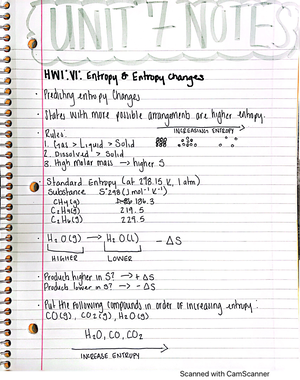 UNIT 7 NOTES
HW1: V1: Entropy & Entropy Changes
· Predicting entropy Changes
· States with more possible arrangements are higher entropy.
· Rules:
INCREASING ENTROPY
1. Gas > Liquid > Solid
2. Dissolved > Solid
3. High molar mass → higher S
· Standard Entropy (at 298.15 K, 1 atm)
Substance S°298 (J mol⁻¹ K⁻¹)
CH4(g) 186.3
C2H4(g) 219.5
C2H6(g) 229.5
· H2O(g) → H2O(l) - ΔS
HIGHER LOWER
· Products higher in S? → + ΔS
Products lower in S? → - ΔS
· Put the following compounds in order of increasing entropy:
CO(g), CO2(g), H2O(g)
H2O, CO, CO2
INCREASE ENTROPY
Scanned with CamScanner